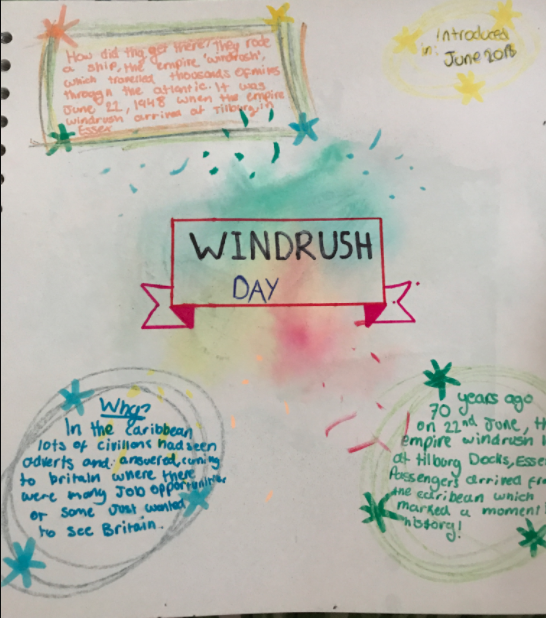 How did they get there? They rode
a ship, the empire 'windrush',
which travelled thousands of miles
through the atlantic. It was
June 22, 1948 when the empire
windrush arrived at Tilbury in
Essex
introduced
in:
June 2018
WINDRUSH
DAY
Why?
In the caribbean
lots of civilions had seen
adverts and answered, coming
to britain where there
were many Job opportunities
or some Just wanted
to see Britain.
70 years ago
on 22nd June, th
empire windrush
at tilbury Docks, Esse
Passengers arrived fr
the caribean which
marked a moment
history!